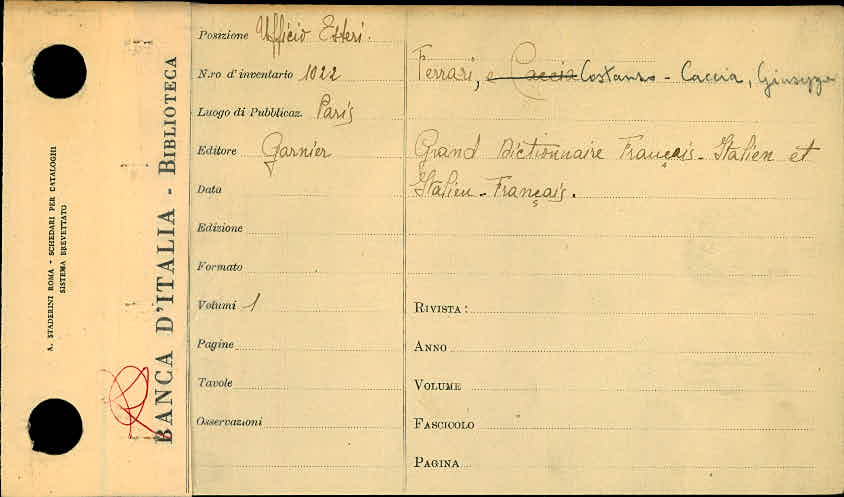 A. STADERINI ROMA - SCHEDARI PER CATALOGHI
SISTEMA BREVETTATO
BANCA D'ITALIA - BIBLIOTECA
Posizione Ufficio Esteri.
N.ro d'inventario 1022
Luogo di Pubblicaz. Paris
Editore Garnier
Data
Edizione
Formato
Volumi 1
Pagine
Tavole
Osservazioni
Ferrari, e Caccia Costanzo - Caccia, Giuseppe
Grand Dictionnaire Français-Italien et
Italien-Français.
RIVISTA:
ANNO
VOLUME
FASCICOLO
PAGINA